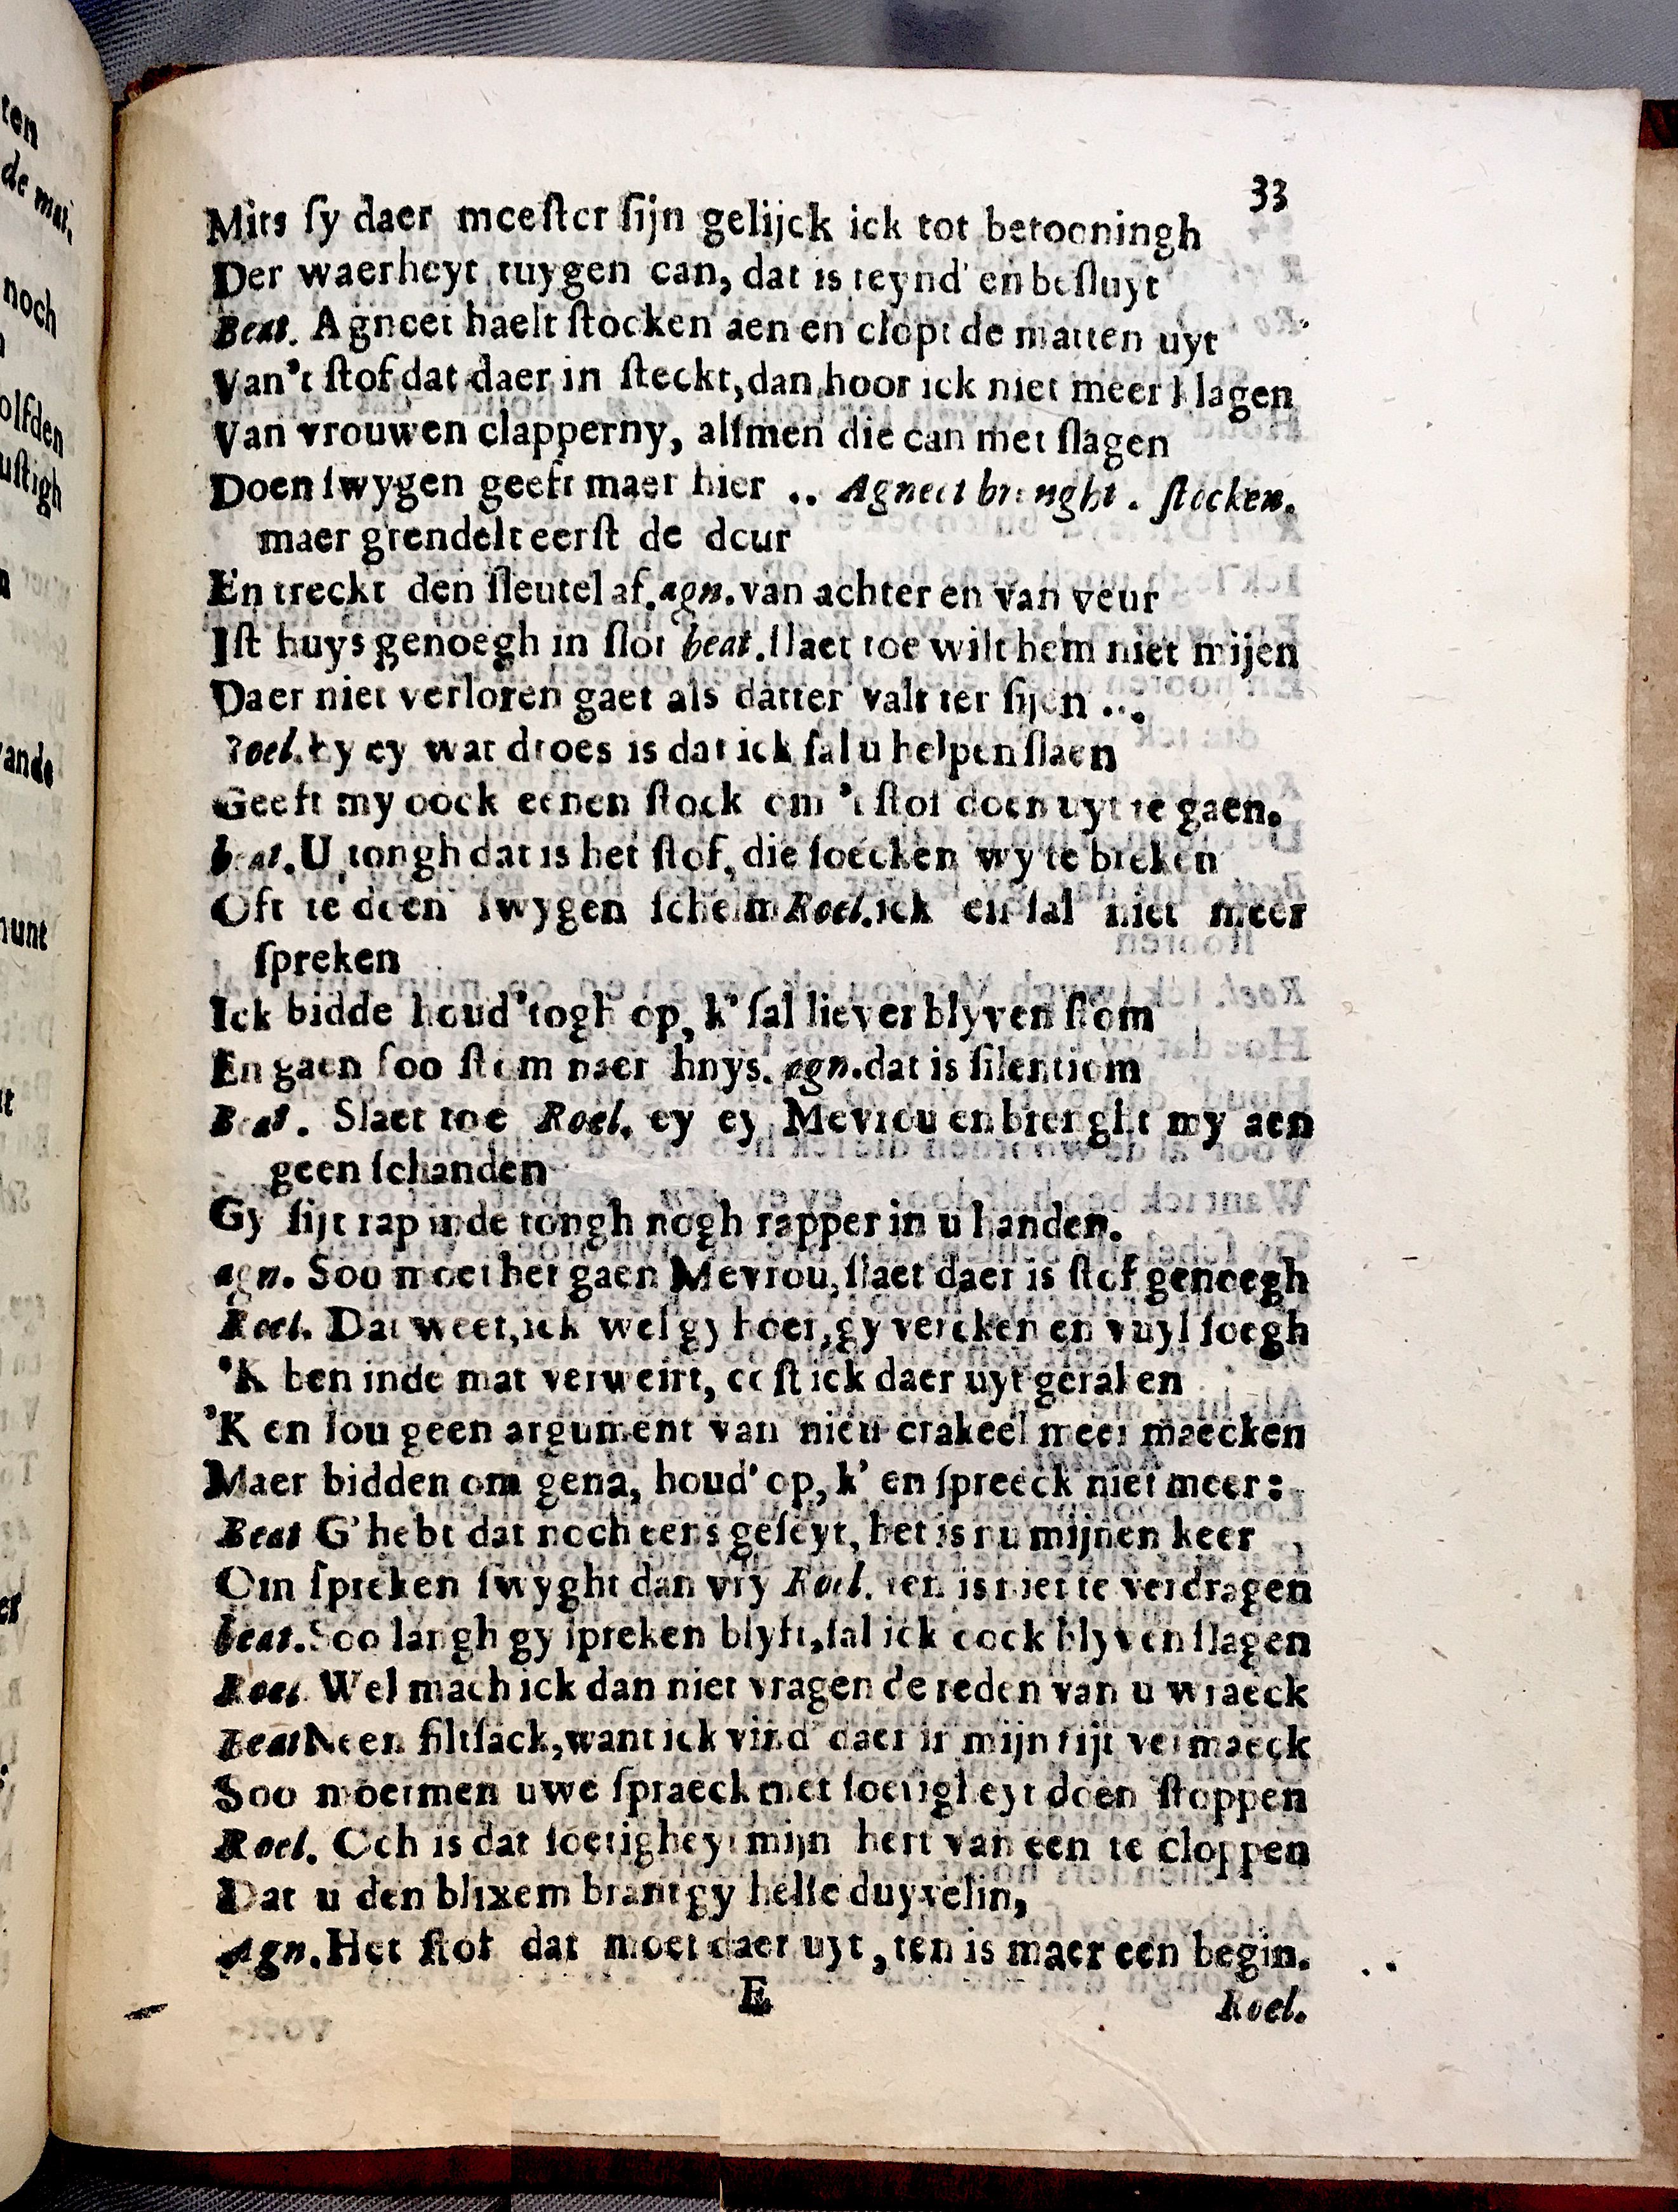 33
Mits ſy daer meeſter ſijn gelijck ick tot betooningh
Der waerheyt tuygen can, dat is teynd' en beſluyt
Beat. Agneet haelt ſtocken aen en clopt de matten uyt
Van't ſtof dat daer in ſteckt, dan hoor ick niet meer klagen
Van vrouwen clapperny, alſmen die can met ſlagen
Doen ſwygen geeft maer hier .. Agneet brenght . ſtocken.
maer grendelt eerſt de deur
En treckt den ſleutel af. agn. van achter en van veur
Iſt huys genoegh in ſlot beat. ſlaet toe wilt hem niet mijen
Daer niet verloren gaet als datter valt ter ſijen ...
Roel. Ey ey wat droes is dat ick ſal u helpen ſlaen
Geeft my oock eenen ſtock om 't ſtof doen uyt te gaen.
beat. U tongh dat is het ſtof, die ſoecken wy te breken
Oft te doen ſwygen ſchelm Roel. ick en ſal niet meer
ſpreken
Ick bidde houd' togh op, k' ſal liever blyven ſtom
En gaen ſoo ſtom naer hnys. agn. dat is ſilentiom
Beat. Slaet toe Roel. ey ey Mevrou en brenght my aen
geen ſchanden
Gy ſijt rap inde tongh nogh rapper in u handen.
agn. Soo moet het gaen Mevrou, ſlaet daer is ſtof genoegh
Roel. Dat weet, ick wel gy hoer, gy vercken en vuyl ſoegh
'K ben inde mat verweirt, coſt ick daer uyt geraken
'K en ſou geen argument van nieu crakeel meer maecken
Maer bidden om gena, houd' op, k' en ſpreeck niet meer:
Beat G'hebt dat noch eens geſeyt, het is nu mijnen keer
Om ſpreken ſwyght dan vry Roel. ten is niet te verdragen
beat. Soo langh gy ſpreken blyft, ſal ick oock blyven ſlagen
Roel Wel mach ick dan niet vragen de reden van u wraeck
Beat Neen filtſack, want ick vind' daer in mijn tijt vermaeck
Soo moetmen uwe ſpraeck met ſoetigheyt doen ſtoppen
Roel. Och is dat ſoetigheyt mijn hert van een te cloppen
Dat u den blixem brant gy helſe duyvelin,
Agn. Het ſtof dat moet daer uyt, ten is maer een begin.
E
Roel.